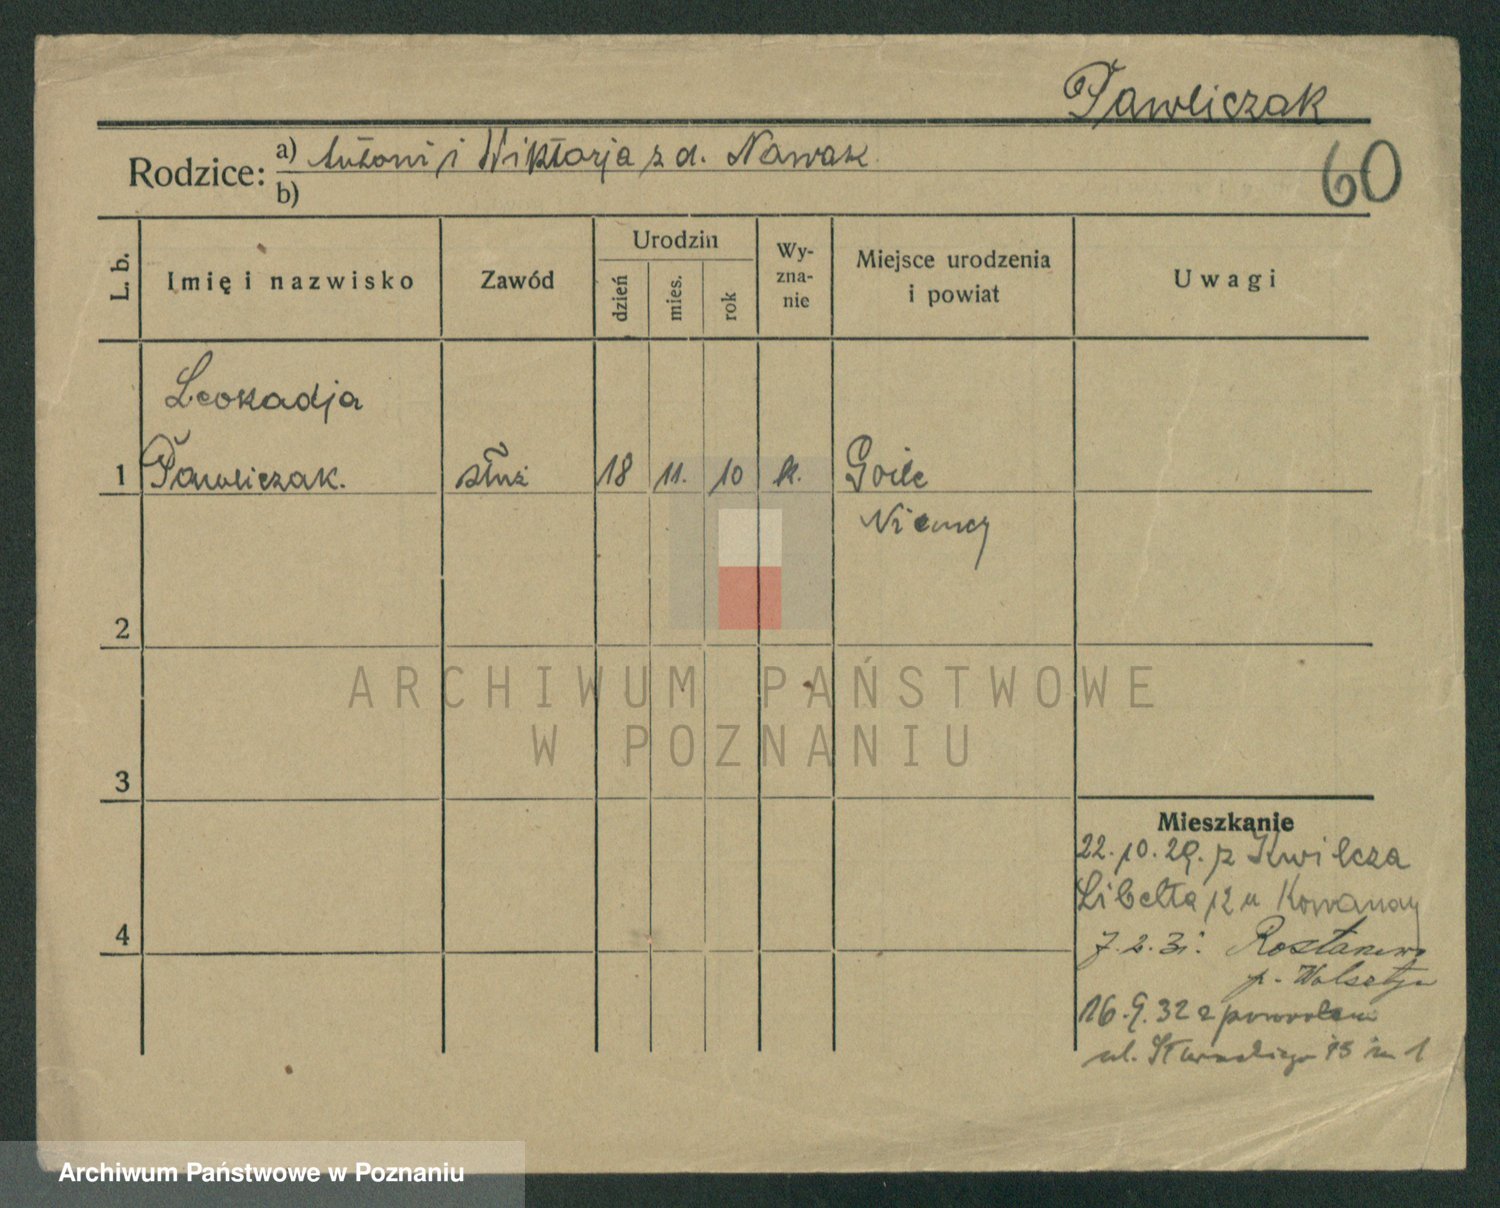 Pawliczak
60
Rodzice: a) Antoni i Wiktorja z d. Nowak
b)
L. b.
Imię i nazwisko
Zawód
Urodzin
dzień
mies.
rok
Wy-
zna-
nie
Miejsce urodzenia
i powiat
Uwagi
Leokadja
1 Pawliczak. służ 18 11. 10 k. Goile
Niemcy
2
3
4
Mieszkanie
22.10.29. z Kwilcza
Libelta 12 u
7.2.31.
p. Wolsztyn
16.9.32 z powrotem
ul. 13 m 1
ARCHIWUM PAŃSTWOWE
W POZNANIU
Archiwum Państwowe w Poznaniu